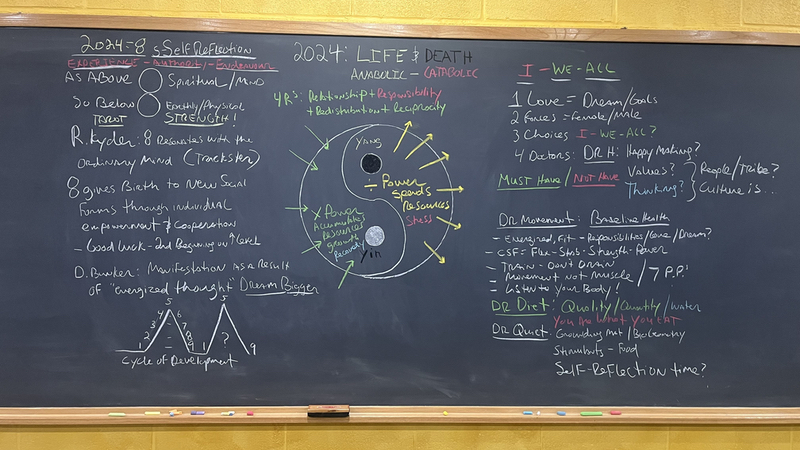 2024-8 is Self Reflection
Experience - Authority - Endeavour
As Above
Spiritual/Mind
So Below
Earthly/Physical
Tarot
Strength!
R. Kyder: 8 Resonates with the
Ordinary Mind (Trackster)
8 gives Birth to New Social
Forms through individual
empowerment & Cooperation
- Good luck - 2nd Beginning on ↑ Level
D. Bunker: Manifestation as a Result
of "energized thought" Dream Bigger
1 2 3 4 5 6 7 8 9
1 5 ? 9
Cycle of Development
2024: Life & Death
Anabolic - Catabolic
4 R's: Relationship + Responsibility
+ Redistribution + Reciprocity
Yang
÷ Power
Spends
Resources
Stress
x Power
Accumulates
Resources
growth
Recovery
Yin
I - We - All
1 Love = Dream/Goals
2 Forces = Female/Male
3 Choices I-We-All?
4 Doctors: Dr H: Happy Making?
Must Have / Not Have
Values?
Thinking?
People/Tribe?
Culture is...
Dr Movement: Baseline Health
- Energized, Fit - Responsibilities/Love/Dream?
- CSF = Flex-Stab-Strength-Power
- Train - Don't Drain
- Movement not Muscle
- Listen to your Body!
7 P.P.
Dr Diet: Quality/Quantity/Water
You Are What You Eat
Dr Quiet: Grounding Mat/BioGeometry
Stimulants - Food
Self-Reflection time?